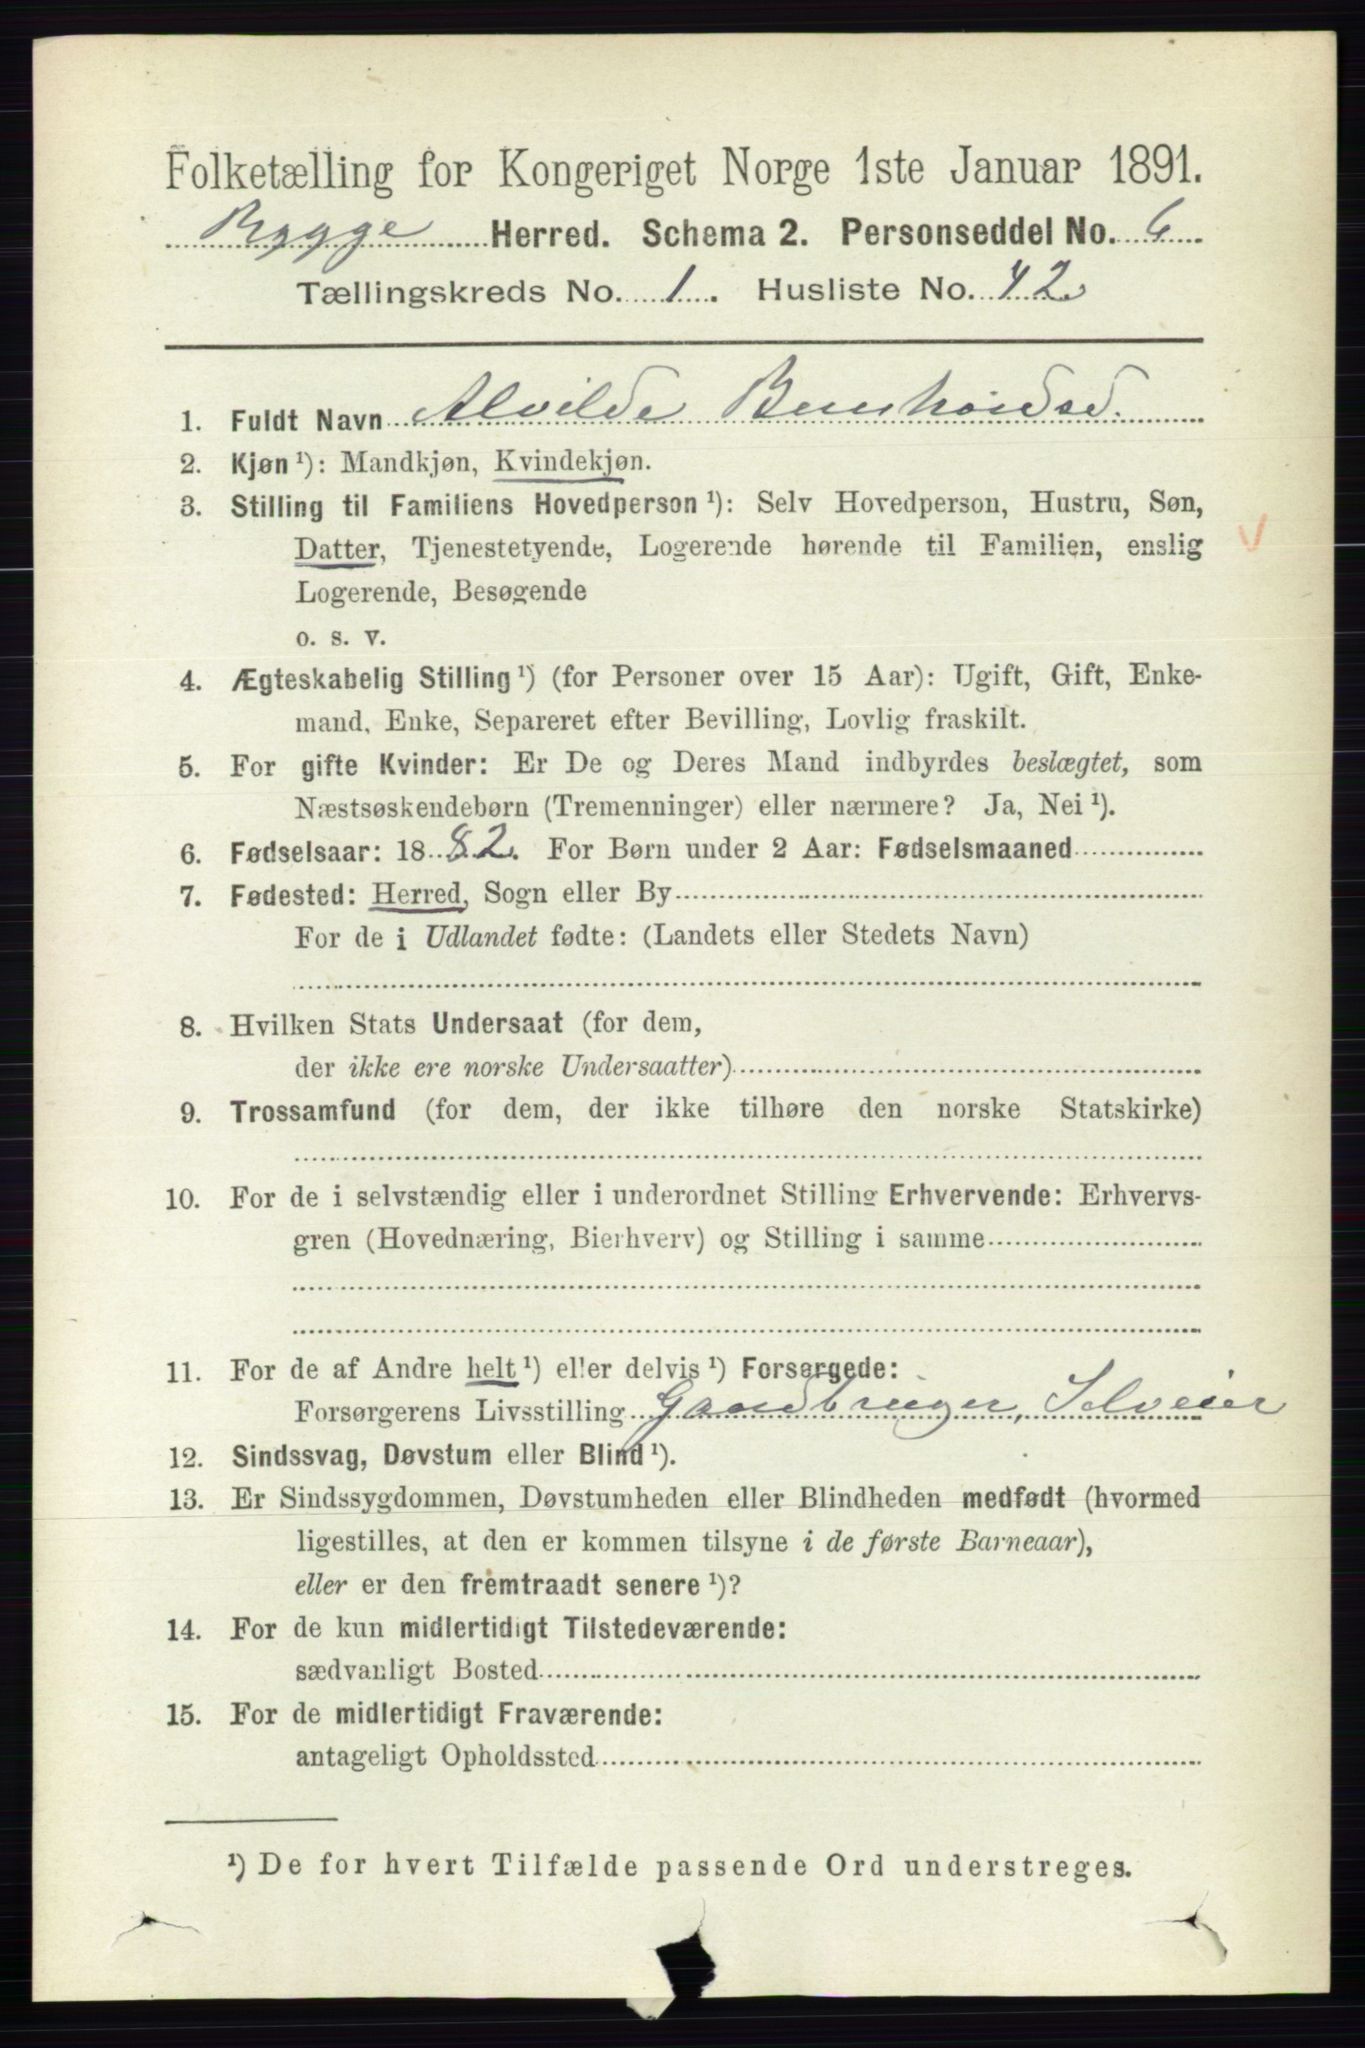 Folketælling for Kongeriget Norge 1ste Januar 1891.
Rygge Herred. Schema 2. Personseddel No. 6
Tællingskreds No. 1. Husliste No. 42
1. Fuldt Navn Alvilde
2. Kjøn ¹): Mandkjøn, Kvindekjøn.
3. Stilling til Familiens Hovedperson ¹): Selv Hovedperson, Hustru, Søn,
Datter, Tjenestetyende, Logerende hørende til Familien, enslig
Logerende, Besøgende
o. s. v.
4. Ægteskabelig Stilling ¹) (for Personer over 15 Aar): Ugift, Gift, Enke-
mand, Enke, Separeret efter Bevilling, Lovlig fraskilt.
5. For gifte Kvinder: Er De og Deres Mand indbyrdes beslægtet, som
Næstsøskendebørn (Tremenninger) eller nærmere? Ja, Nei ¹).
6. Fødselsaar: 1882. For Børn under 2 Aar: Fødselsmaaned
7. Fødested: Herred, Sogn eller By
For de i Udlandet fødte: (Landets eller Stedets Navn)
8. Hvilken Stats Undersaat (for dem,
der ikke ere norske Undersaatter)
9. Trossamfund (for dem, der ikke tilhøre den norske Statskirke)
10. For de i selvstændig eller i underordnet Stilling Erhvervende: Erhvervs-
gren (Hovednæring, Bierhverv) og Stilling i samme
11. For de af Andre helt ¹) eller delvis ¹) Forsørgede:
Forsørgerens Livsstilling Gaardbruger, Selveier
12. Sindssvag, Døvstum eller Blind ¹).
13. Er Sindssygdommen, Døvstumheden eller Blindheden medfødt (hvormed
ligestilles, at den er kommen tilsyne i de første Barneaar),
eller er den fremtraadt senere ¹)?
14. For de kun midlertidigt Tilstedeværende:
sædvanligt Bosted
15. For de midlertidigt Fraværende:
antageligt Opholdssted
¹) De for hvert Tilfælde passende Ord understreges.